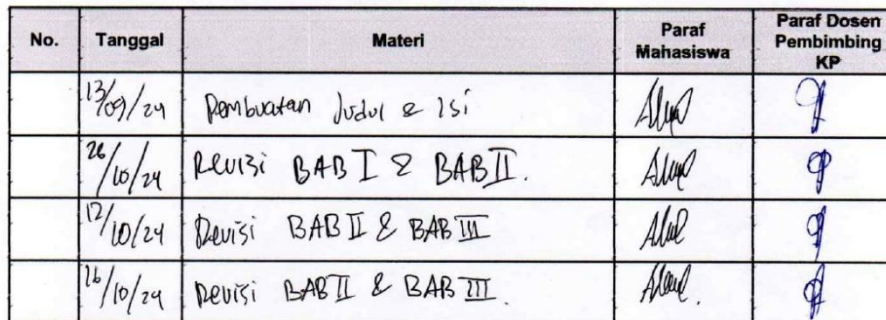 No. Tanggal Materi Paraf Mahasiswa Paraf Dosen Pembimbing KP
13/09/24 Pembuatan Judul & Isi
26/10/24 Revisi BAB I & BAB II.
12/10/24 Revisi BAB II & BAB III
16/10/24 Revisi BAB II & BAB III.